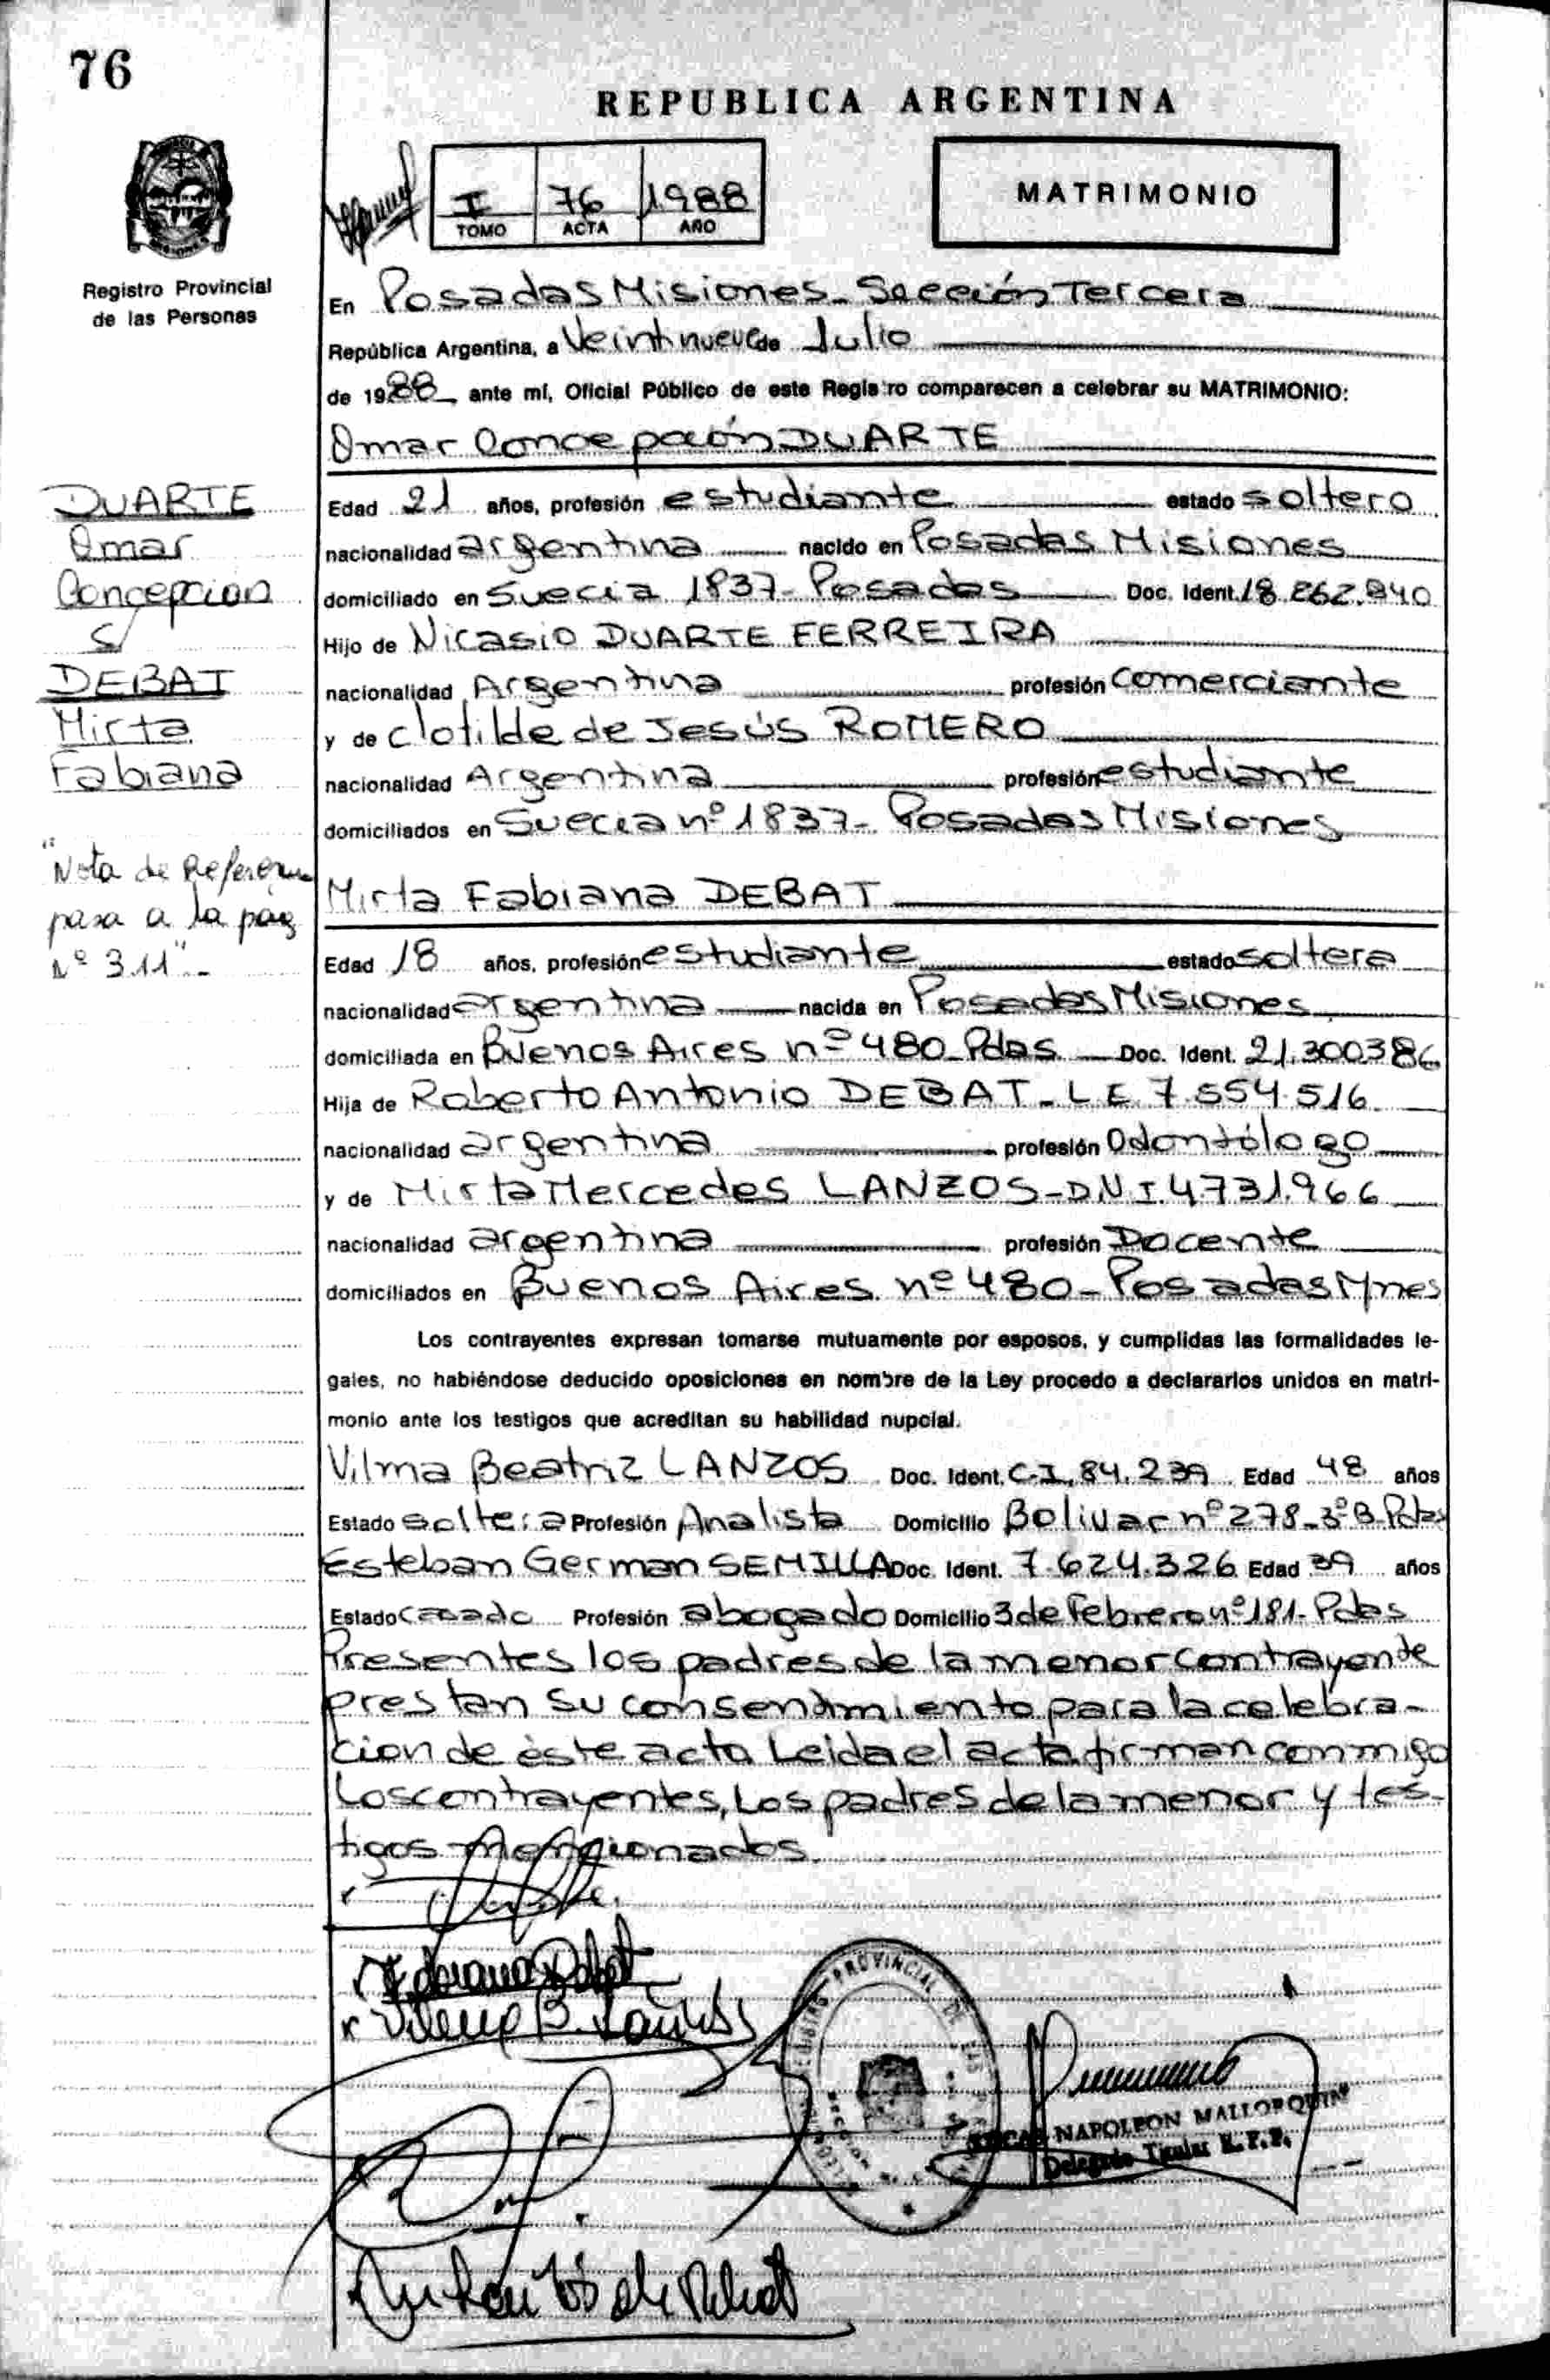 76
REPUBLICA ARGENTINA
I 76 1988
TOMO ACTA AÑO
MATRIMONIO
Registro Provincial
de las Personas
En Posadas Misiones - Sección Tercera
República Argentina, a Veintinueve de Julio
de 1988 ante mí, Oficial Público de este Registro comparecen a celebrar su MATRIMONIO:
Omar Concepción DUARTE
DUARTE
Omar
Concepcion
S/
DEBAT
Mirta
Fabiana
"Nota de Referencia
pasa a la pág
nº 311"-
Edad 21 años, profesión estudiante estado soltero
nacionalidad argentina nacido en Posadas Misiones
domiciliado en Suecia 1837- Posadas Doc. Ident. 18.262.940
Hijo de Nicasio DUARTE FERREIRA
nacionalidad Argentina profesión comerciante
y de Clotilde de Jesús ROMERO
nacionalidad Argentina profesión estudiante
domiciliados en Suecia nº 1837- Posadas Misiones
Mirta Fabiana DEBAT
Edad 18 años, profesión estudiante estado soltera
nacionalidad argentina nacida en Posadas Misiones
domiciliada en Buenos Aires nº 480 - Pdas Doc. Ident. 21.300.386
Hija de Roberto Antonio DEBAT - L E 7.554.516
nacionalidad argentina profesión Odontólogo
y de Mirta Mercedes LANZOS - D.N.I. 4.731.966
nacionalidad argentina profesión Docente
domiciliados en Buenos Aires nº 480 - Posadas Mnes
Los contrayentes expresan tomarse mutuamente por esposos, y cumplidas las formalidades le-
gales, no habiéndose deducido oposiciones en nombre de la Ley procedo a declararlos unidos en matri-
monio ante los testigos que acreditan su habilidad nupcial.
Vilma Beatriz LANZOS Doc. Ident. C.I. 84.239 Edad 48 años
Estado soltera Profesión Analista Domicilio Bolivar nº 278 - 3º B - Pdas
Esteban German SEMILLA Doc. Ident. 7.624.326 Edad 39 años
Estado casado Profesión abogado Domicilio 3 de Febrero nº 181 - Pdas
Presentes los padres de la menor contrayente
prestan su consentimiento para la celebra-
cion de éste acto Leida el acta firman conmigo
Los contrayentes, Los padres de la menor y tes-
tigos mencionados.
Fabiana Debat
Vilma B. Lanzós
REGISTRO PROVINCIAL DE LAS PERSONAS
NAPOLEON MALLORQUIN
Delegado Titular R.P.P.
de Debat